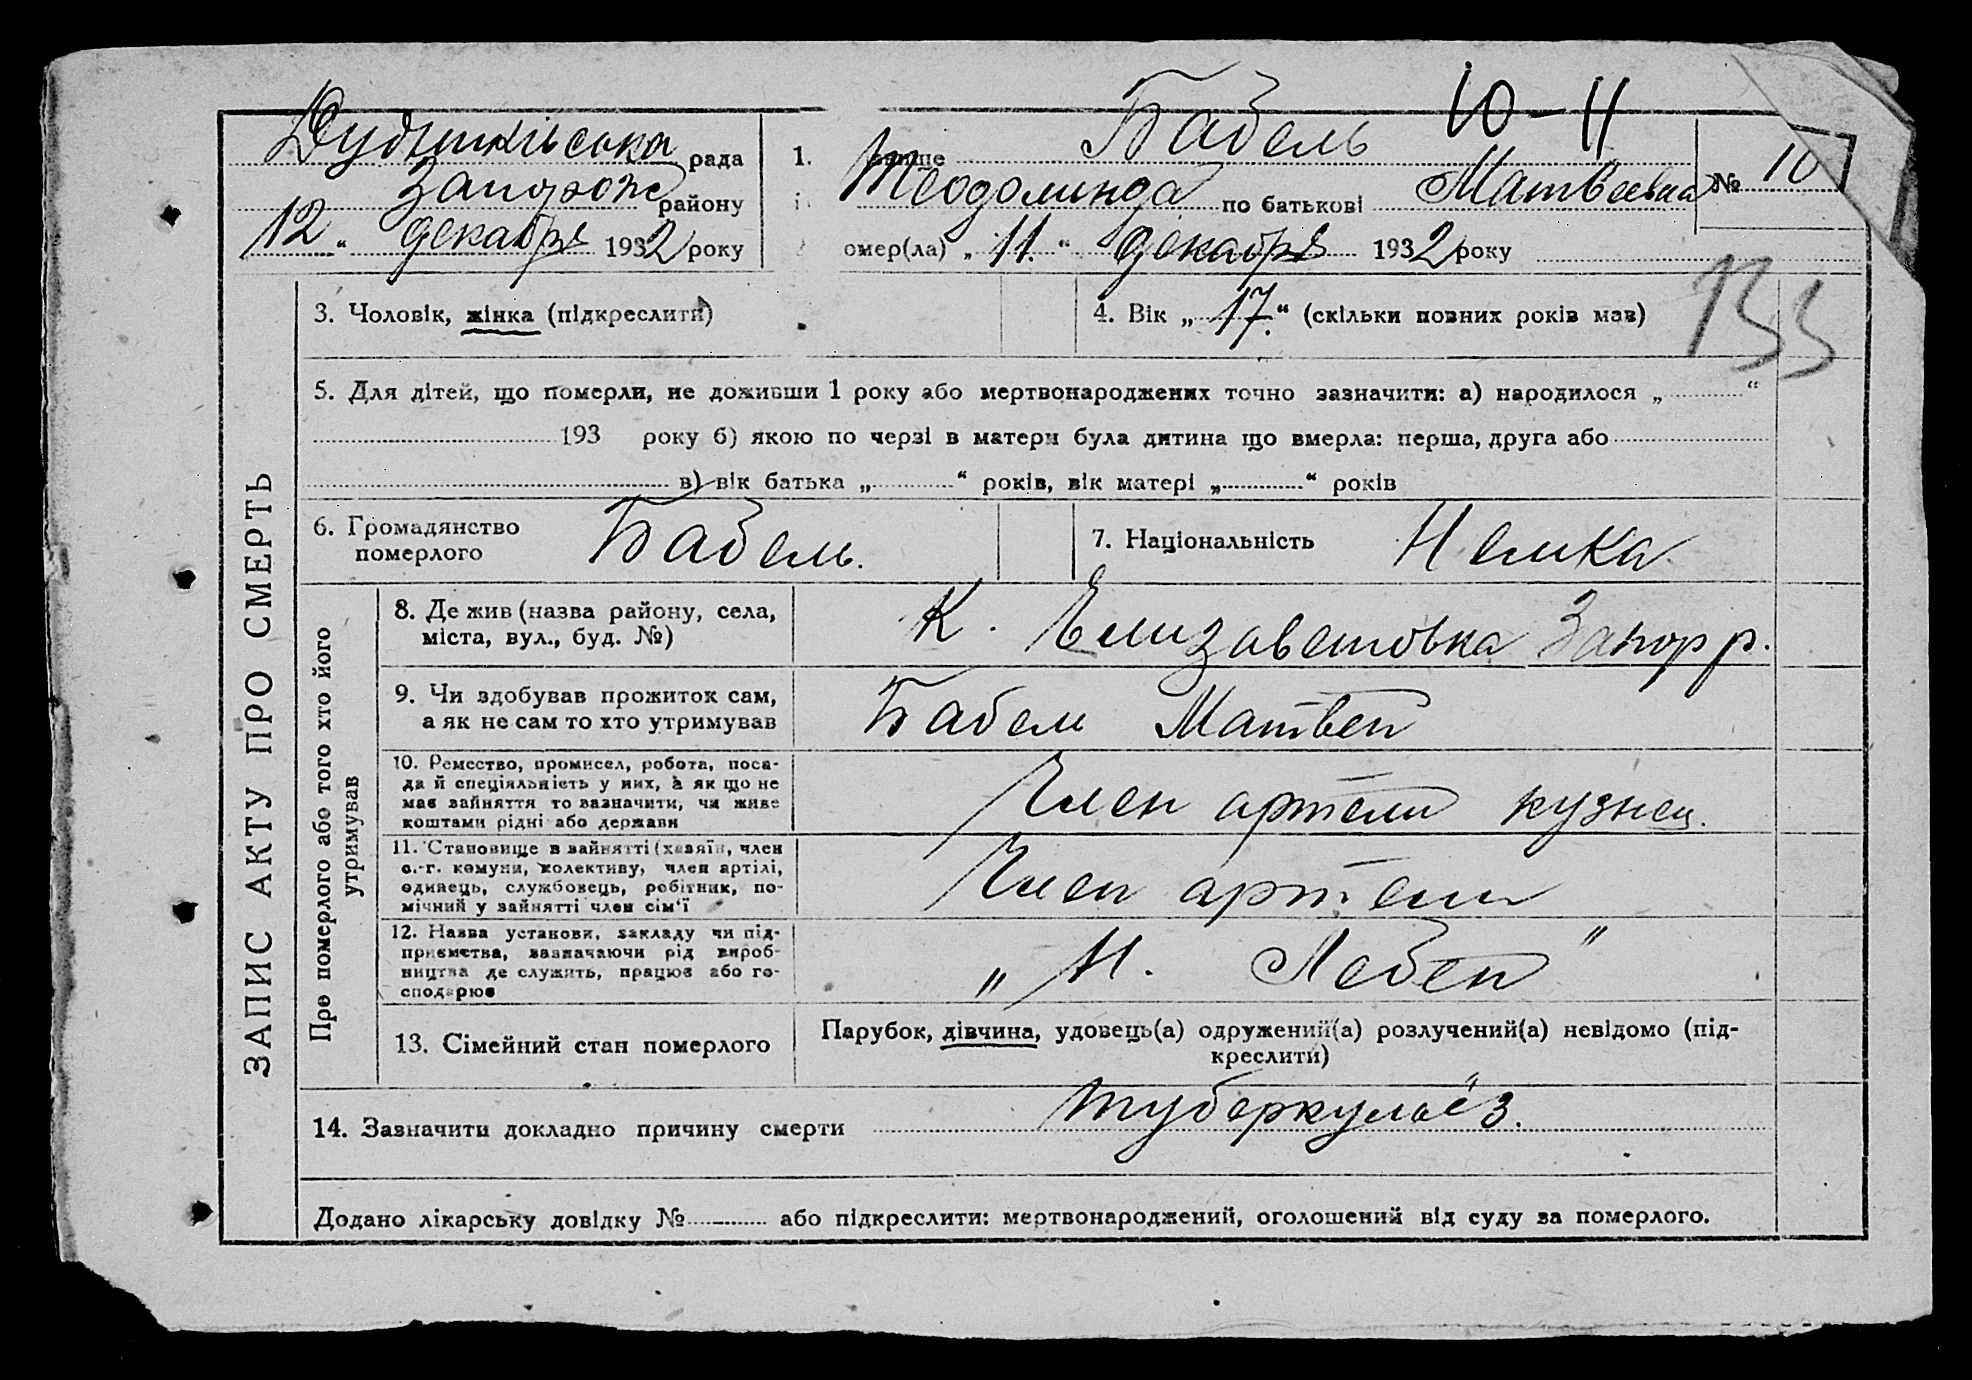 Бабель 10-11
рада 1. звище
Запорож району і Теодолинда по батькові Матвеевна № 10
12 " декабря 1932 року омер(ла) „ 11 " декабря 1932 року
133
3. Чоловік, жінка (підкреслити) 4. Вік „ 17 " (скільки повних років мав)
5. Для дітей, що померли, не доживши 1 року або мертвонароджених точно зазначити: а) народилося „ "
193 року б) якою по черзі в матери була дитина що вмерла: перша, друга або
в) вік батька „ " років, вік матері „ " років
6. Громадянство
померлого Бабель. 7. Національність Немка
ЗАПИС АКТУ ПРО СМЕРТЬ
Про померлого або того хто його
утримував
8. Де жив (назва району, села,
міста, вул., буд. №) К. Елизаветовка Запор р.
9. Чи здобував прожиток сам,
а як не сам то хто утримував Бабель Матвей
10. Ремество, промисел, робота, поса-
да й спеціяльність у них, а як що не
має зайняття то зазначити, чи живе
коштами рідні або держави Член артели кузнец.
11. Становище в зайнятті (хазяїн, член
с.-г. комуни, колективу, член артілі,
одинець, службовець, робітник, по-
мічний у зайнятті член сім'ї Член артели
12. Назва установи, закладу чи під-
приємства, зазначаючи рід вироб-
ництва де служить, працює або го-
сподарює „ Н. Лебен "
13. Сімейний стан померлого Парубок, дівчина, удовець(а) одружений(а) розлучений(а) невідомо (під-
креслити)
14. Зазначити докладно причину смерти туберкульёз.
Додано лікарську довідку № або підкреслити: мертвонароджений, оголошений від суду за померлого.